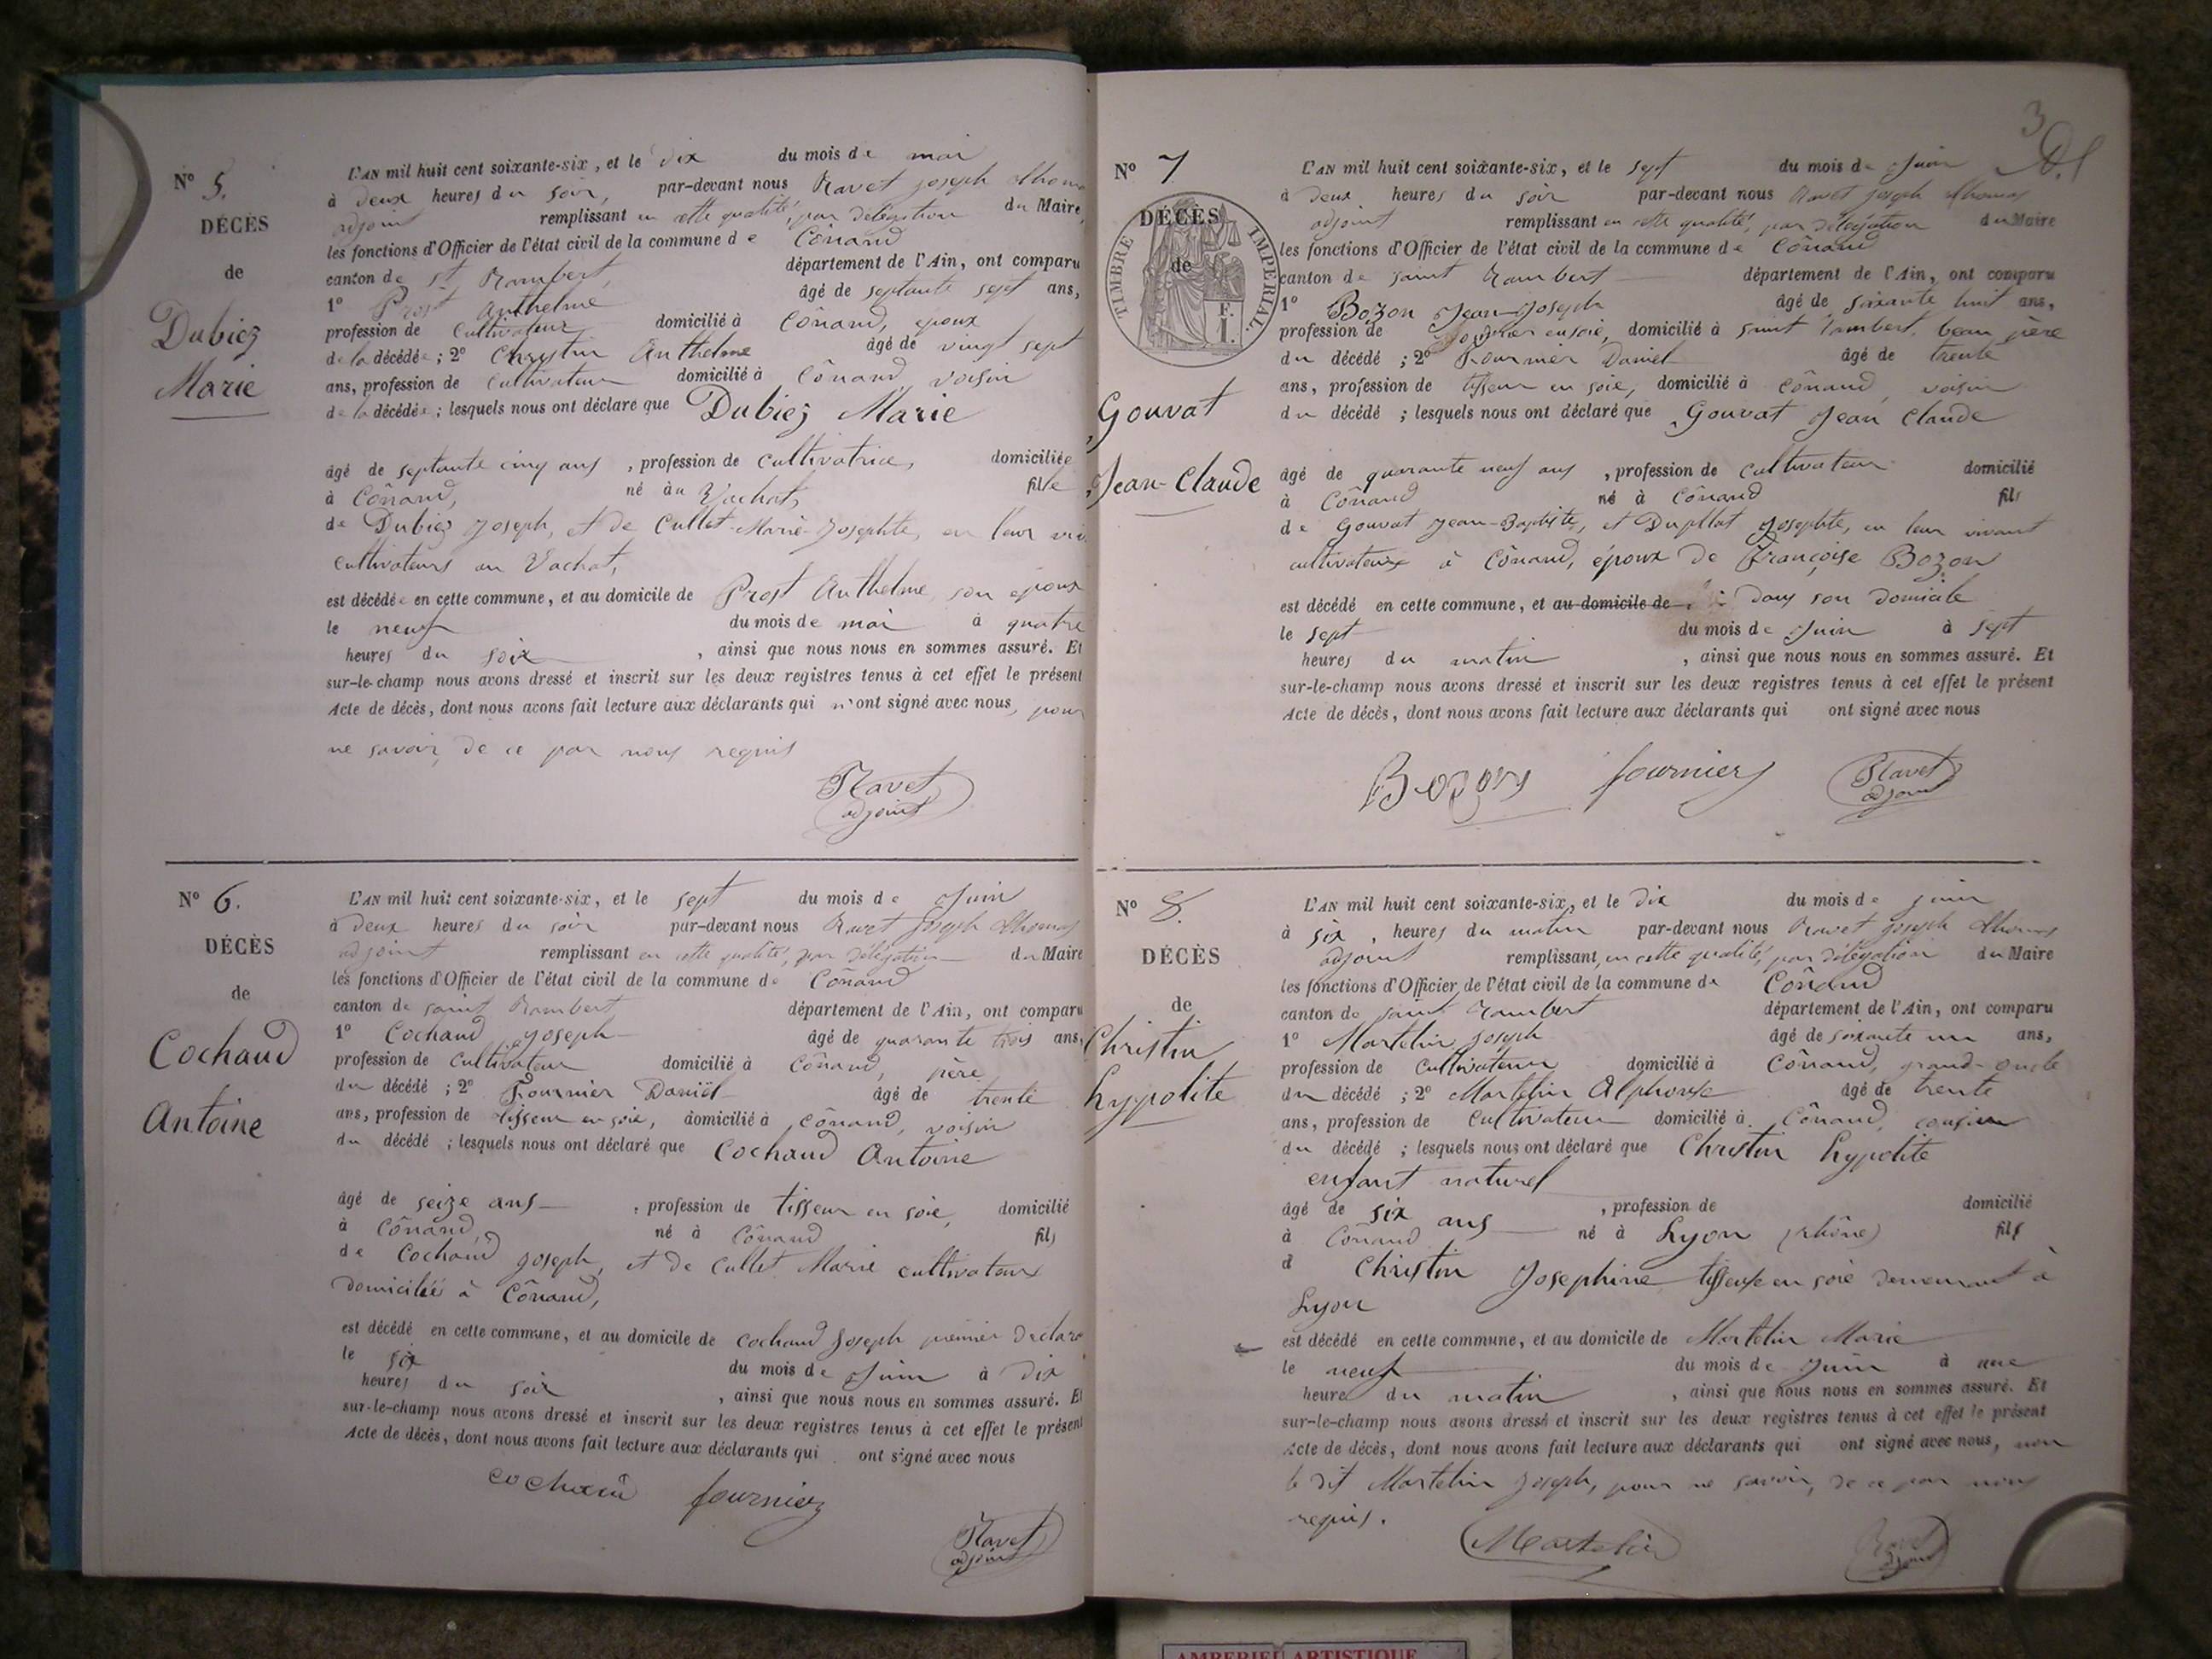 N° 5.
DÉCÈS
de
Dubiez
Marie
L'AN mil huit cent soixante-six, et le dix du mois de mai
à deux heures du soir, par-devant nous Ravet Joseph Thomas
adjoint remplissant en cette qualité, par délégation du Maire,
les fonctions d'Officier de l'état civil de la commune de Cônand
canton de St Rambert, département de l'Ain, ont comparu
1° Prost Anthelme âgé de septante sept ans,
profession de cultivateur domicilié à Cônand, époux
de la décédée ; 2° Christin Anthelme âgé de vingt sept
ans, profession de cultivateur domicilié à Cônand, voisin
de la décédée ; lesquels nous ont déclaré que Dubiez Marie
âgé de septante cinq ans, profession de cultivatrice, domiciliée
à Cônand, né au Vachat, fille
de Dubiez Joseph, et de Cullet Marie-Josephte, en leur viv
cultivateurs au Vachat,
est décédée en cette commune, et au domicile de Prost Anthelme son époux
le neuf du mois de mai à quatre
heures du soir, ainsi que nous nous en sommes assuré. Et
sur-le-champ nous avons dressé et inscrit sur les deux registres tenus à cet effet le présent
Acte de décès, dont nous avons fait lecture aux déclarants qui n'ont signé avec nous, pour
ne savoir, de ce par nous requis
Ravet
adjoint
N° 6.
DÉCÈS
de
Cochaud
Antoine
L'AN mil huit cent soixante-six, et le sept du mois de Juin
à deux heures du soir par-devant nous Ravet Joseph Thomas
adjoint remplissant en cette qualité, par délégation du Maire
les fonctions d'Officier de l'état civil de la commune de Cônand
canton de saint Rambert département de l'Ain, ont comparu
1° Cochaud Joseph âgé de quarante trois ans,
profession de cultivateur domicilié à Cônand, père
du décédé ; 2° Fournier Daniël âgé de trente
ans, profession de tisseur en soie, domicilié à Cônand, voisin
du décédé ; lesquels nous ont déclaré que Cochaud Antoine
âgé de seize ans, profession de tisseur en soie, domicilié
à Cônand, né à Cônand fils
de Cochaud Joseph, et de Cullet Marie cultivateurs
domiciliés à Cônand,
est décédé en cette commune, et au domicile de Cochaud Joseph premier déclara
le six du mois de Juin à dix
heures du soir, ainsi que nous nous en sommes assuré. Et
sur-le-champ nous avons dressé et inscrit sur les deux registres tenus à cet effet le présent
Acte de décès, dont nous avons fait lecture aux déclarants qui ont signé avec nous
Cochaud fournier
Ravet
adjoint
3
N° 7
DÉCÈS
de
TIMBRE IMPERIAL
F.
1.
Gouvat
Jean-Claude
L'AN mil huit cent soixante-six, et le sept du mois de Juin
à deux heures du soir par-devant nous Ravet Joseph Thomas
adjoint remplissant en cette qualité, par délégation du Maire
les fonctions d'Officier de l'état civil de la commune de Cônand
canton de saint Rambert département de l'Ain, ont comparu
1° Bozon Jean-Joseph âgé de soixante huit ans,
profession de en soie, domicilié à saint Rambert, beau père
du décédé ; 2° Fournier Daniel âgé de trente
ans, profession de tisseur en soie, domicilié à Cônand, voisin
du décédé ; lesquels nous ont déclaré que Gouvat Jean Claude
âgé de quarante neuf ans, profession de cultivateur domicilié
à Cônand né à Cônand fils
de Gouvat Jean-Baptiste, et Duplat Josephte, en leur vivant
cultivateurs à Cônand, époux de Françoise Bozon
est décédé en cette commune, et au domicile de dans son domicile
le sept du mois de Juin à sept
heures du matin, ainsi que nous nous en sommes assuré. Et
sur-le-champ nous avons dressé et inscrit sur les deux registres tenus à cet effet le présent
Acte de décès, dont nous avons fait lecture aux déclarants qui ont signé avec nous
Bozon fournier Ravet
adjoint
N° 8.
DÉCÈS
de
Christin
hyppolite
L'AN mil huit cent soixante-six, et le dix du mois de juin
à six, heures du matin par-devant nous Ravet Joseph Thomas
adjoint remplissant, en cette qualité, par délégation du Maire
les fonctions d'Officier de l'état civil de la commune de Cônand
canton de saint Rambert département de l'Ain, ont comparu
1° Martelin Joseph âgé de soixante un ans,
profession de cultivateur domicilié à Cônand, grand-oncle
du décédé ; 2° Martelin Alphonse âgé de trente
ans, profession de cultivateur domicilié à Cônand, cousin
du décédé ; lesquels nous ont déclaré que Christin hypolite
enfant naturel
âgé de six ans, profession de domicilié
à Cônand né à Lyon (rhône) fils
d Christin Josephine tisseuse en soie demeurant à
Lyon
est décédé en cette commune, et au domicile de Martelin Marie
le neuf du mois de Juin à une
heure du matin, ainsi que nous nous en sommes assuré. Et
sur-le-champ nous avons dressé et inscrit sur les deux registres tenus à cet effet le présent
Acte de décès, dont nous avons fait lecture aux déclarants qui ont signé avec nous, non
le dit Martelin Joseph, pour ne savoir, de ce par nous
requis.
Martelin Ravet
adjoint
AMBERIEU ARTISTIQUE